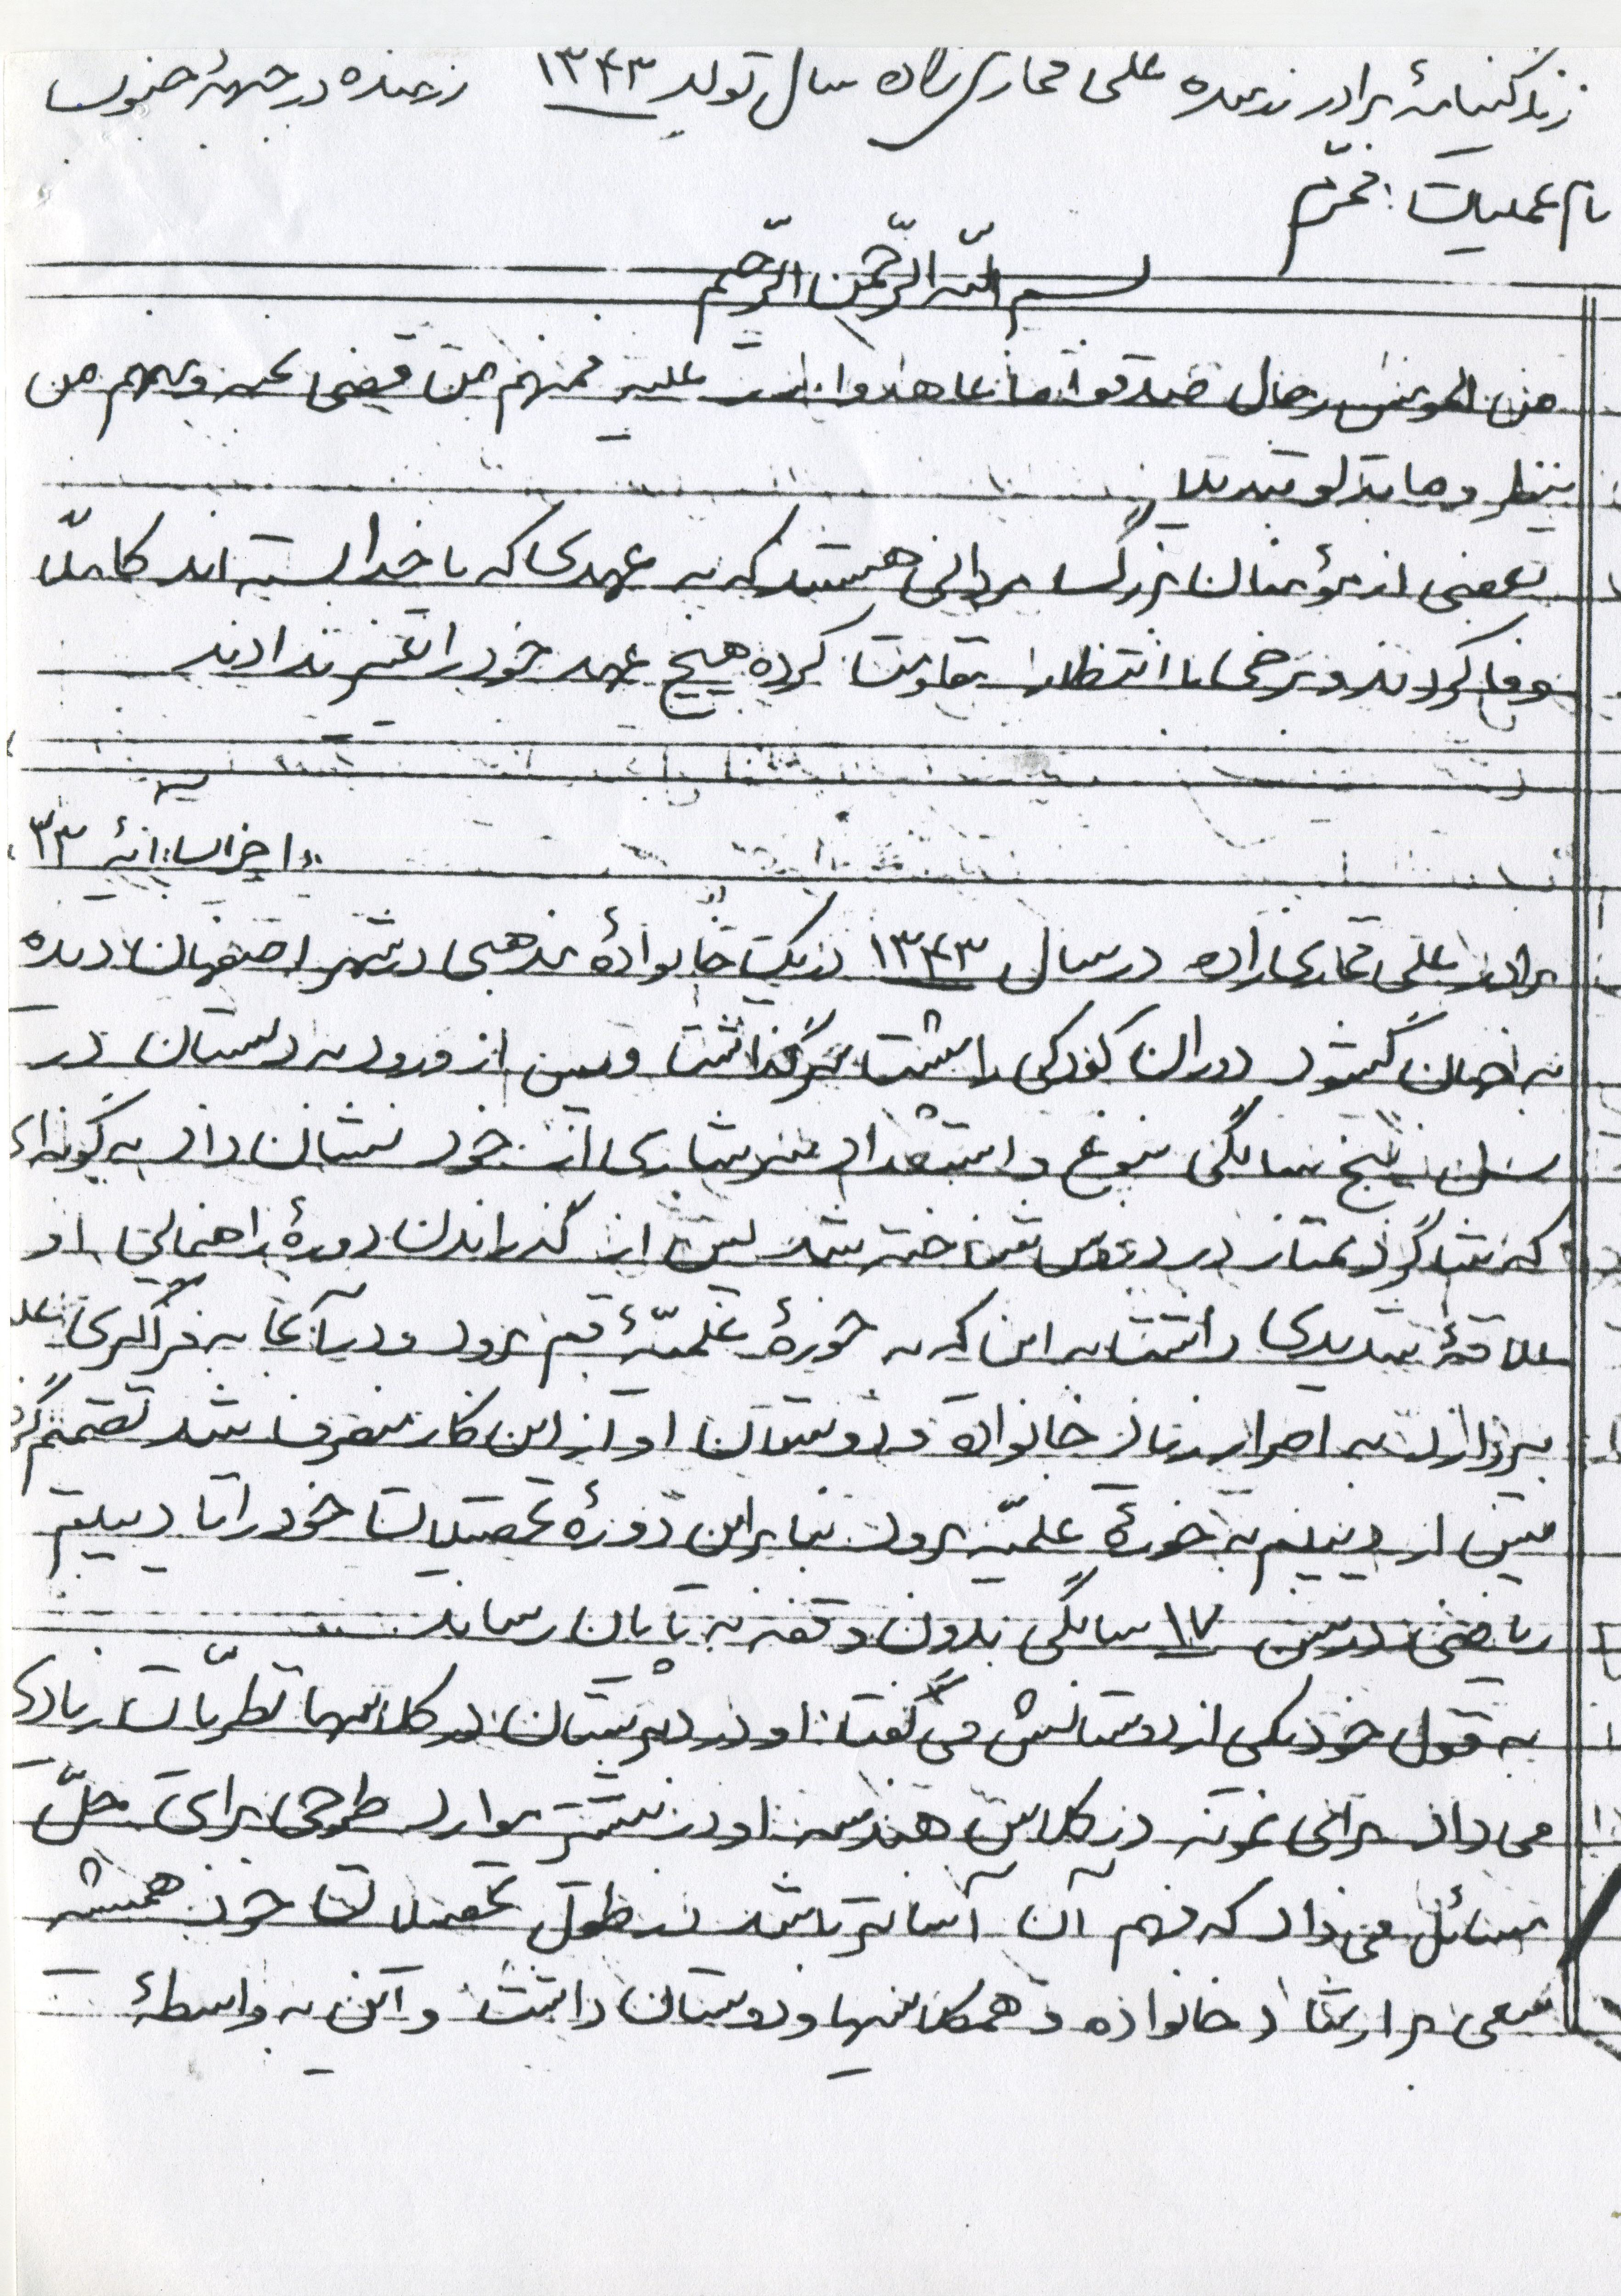 زندگینامهٔ برادر رزمنده علی قماری زاده سال تولد ۱۳۴۳ رزمنده در جبههٔ جنوب
نام عملیات: محرّم
بسم اللّه الرّحمن الرّحیم
من المومنین رجال صدقوا ما عاهدوا الله علیه فمنهم من قضی نحبه ومنهم من
ینتظر وما بدلو تبدیلا
بعضی از مؤمنان بزرگ مردانی هستند که به عهدی که با خدا بسته اند کاملاً
وفا کردند و برخی با انتظار مقاومت کرده هیچ عهد خود را تغییر ندادند
«احزاب: آیهٔ ۳۳
برادر علی قماری زاده در سال ۱۳۴۳ در یک خانوادهٔ مذهبی در شهر اصفهان دیده
به جهان گشود دوران کودکی را پشت سر گذاشت و پس از ورود به دبستان در
سن پنج سالگی نبوغ و استعداد سرشاری از خود نشان داد به گونه ای
که شاگرد ممتاز در دروس شناخته شد پس از گذراندن دورهٔ راهنمایی او
علاقهٔ شدیدی داشت به این که به حوزهٔ علمیّهٔ قم برود و در آنجا به فراگیری
بپردازد به اصرار زیاد خانواده و دوستان او از این کار منصرف شد تصمیم
پس از دیپلم به حوزهٔ علمیّه برود بنابراین دورهٔ تحصیلات خود را تا دیپلم
ریاضی در سن ۱۷ سالگی بدون وقفه به پایان رساند
به قول خود یکی از دوستانش می گفت: او در دبیرستان در کلاسها نظریّات زیادی
می داد برای نمونه در کلاس هندسه او در بیشتر موارد طرحی برای حلّ
مسائل می داد که فهم آن آسانتر باشد در طول تحصیلات خود همیشه
سعی بر ارشاد خانواده و همکلاسیها و دوستان داشت و این به واسطهٔ